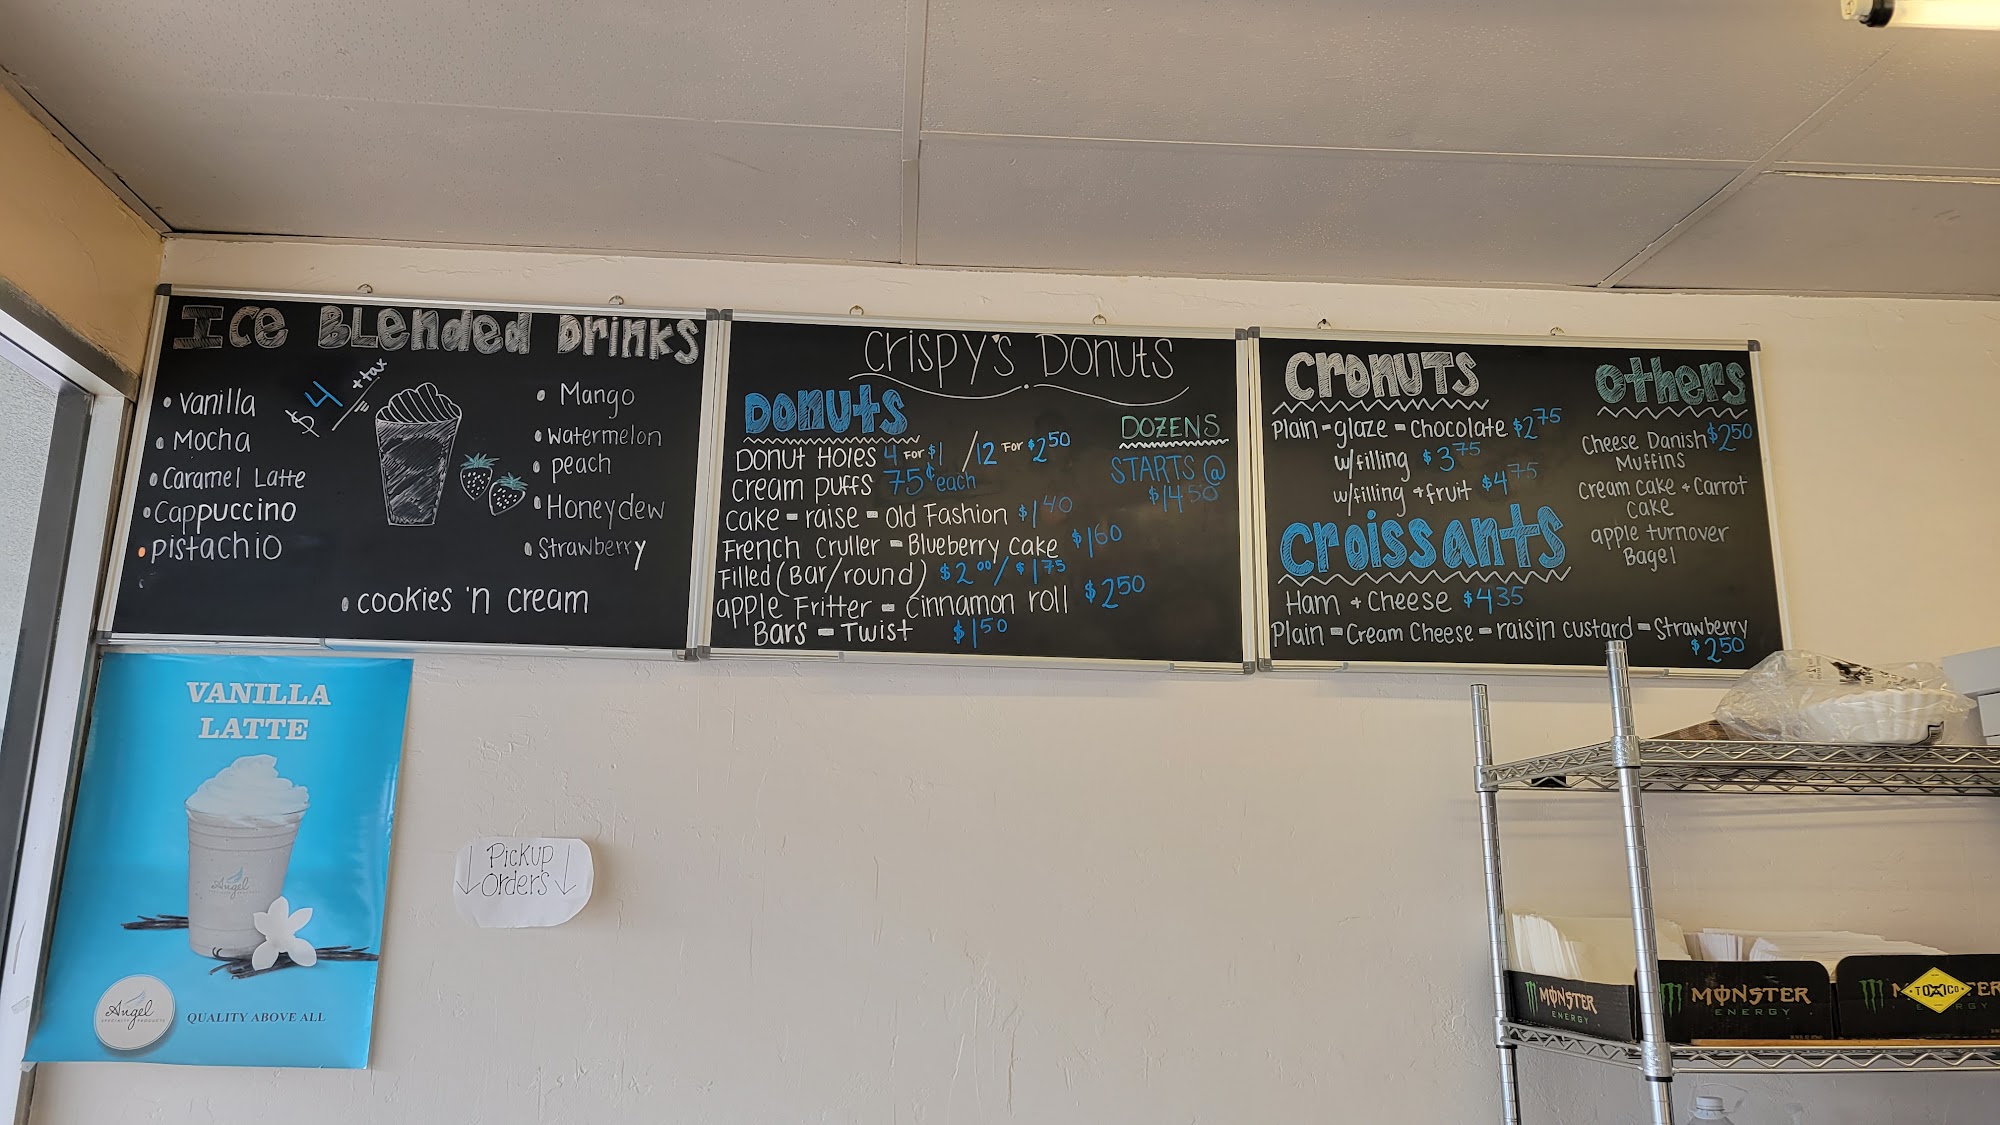 Ice Blended Drinks
$4 +tax
• vanilla
• Mocha
• Caramel Latte
• Cappuccino
• pistachio
• Mango
• watermelon
• peach
• Honeydew
• Strawberry
• cookies 'n cream
Crispy's Donuts
Donuts
Donut Holes 4 for $1 / 12 for $2.50
cream puffs 75¢ each
cake - raise - Old Fashion $1 40
French Cruller - Blueberry cake $1 60
Filled (Bar/round) $2 00 / $1 75
apple Fritter - cinnamon roll $2 50
Bars - Twist $1 50
DOZENS
STARTS @
$14 50
CRONUTS
Plain - glaze - chocolate $2 75
w/filling $3 75
w/filling + fruit $4 75
Croissants
Ham + Cheese $4 35
Plain - Cream Cheese - raisin custard - Strawberry
$2 50
Others
Cheese Danish $2 50
Muffins
cream cake + Carrot
cake
apple turnover
Bagel
VANILLA
LATTE
Angel
Angel
SPECIALTY PRODUCTS
QUALITY ABOVE ALL
Pickup
Orders
MONSTER
ENERGY
MONSTER
ENERGY
MONSTER
ENERGY
TOXICO